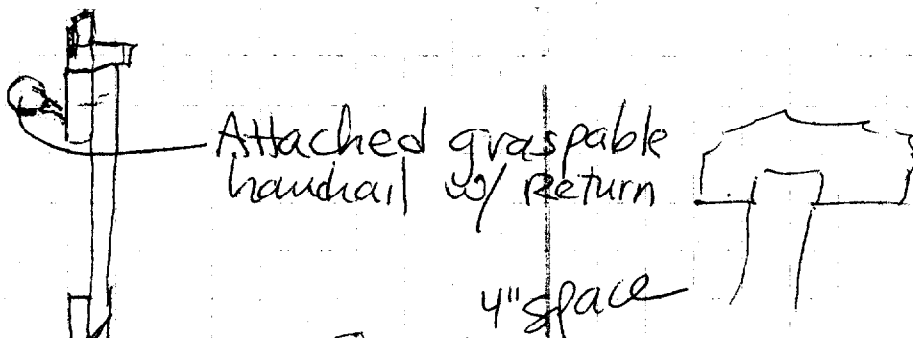 Attached graspable
handrail w/ Return
4" space